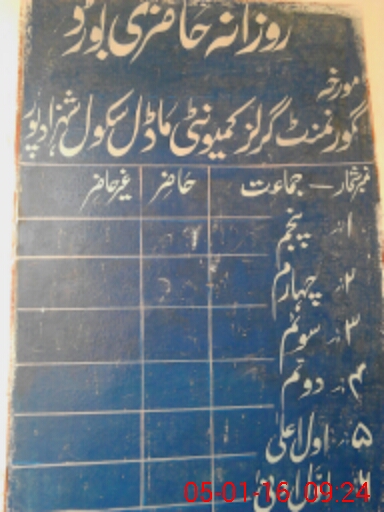 روزانہ حاضری بورڈ
مورخہ
گورنمنٹ گرلز کمیونٹی ماڈل سکول شہزادپور
نمبر شمار - جماعت حاضر غیر حاضر
۱ پنجم
۲ چہارم
۳ سوئم
۴ دوئم
۵ اول اعلیٰ
05-01-16 09:24